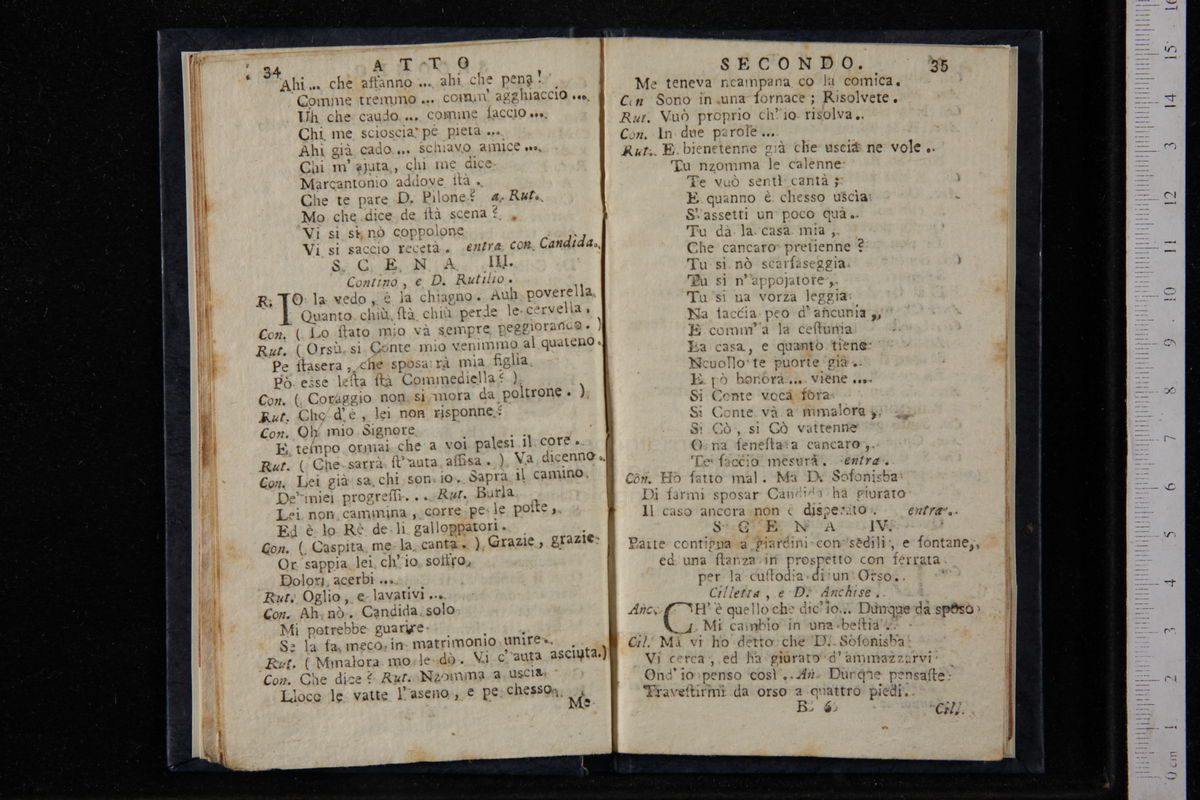 34 ATTO
Ahi... che affanno ... ahi che pena!
Comme tremmo ... comm' agghiaccio ...
Uh che caudo ... comme faccio ...
Chi me scioscia pe pietà ...
Ahi già cado ... schiavo amice ...
Chi m' ajuta, chi me dice
Marcantonio addove ſtà.
Che te pare D. Pilone? a Rut.
Mo che dice de ſtà scena?
Vi si sì nò coppolone
Vi si saccio recetà. entra con Candida.
SCENA III.
Contino, e D. Rutilio.
R. IO la vedo, e la chiagno. Auh poverella
Quanto chiù ſtà chiù perde le cervella,
Con. ( Lo ſtato mio và sempre peggiorando. )
Rut. ( Orsù si Conte mio venimmo al quateno.
Pe ſtasera, che sposarrà mia figlia
Pò esse leſta ſtà Commediella? )
Con. ( Coraggio non si mora da poltrone. )
Rut. Che d'è, lei non risponne?
Con. Oh mio Signore
E tempo ormai che a voi palesi il core.
Rut. ( Che sarrà ſt'auta affisa. ) Va dicenno.
Con. Lei già sa chi son io. Saprà il camino
De' miei progreſſi... Rut. Burla
Lei non cammina, corre pe le poſte,
Ed è lo Rè de li galloppatori.
Con. ( Caspita me la canta. ) Grazie, grazie
Or sappia lei ch'io soffro
Dolori acerbi ...
Rut. Oglio, e lavativi ...
Con. Ah nò. Candida solo
Mi potrebbe guarire
Se la fa meco in matrimonio unire.
Rut. ( Mmalora mo le dò. Vi c'auta asciuta.)
Con. Che dice? Rut. Nzomma a uscia
Lloco le vatte l'aseno, e pe chesso
Me
SECONDO. 35
Me teneva ncampana co la comica.
Con Sono in una fornace; Risolvete.
Rut. Vuò proprio ch'io risolva.
Con. In due parole ...
Rut. E bienetenne già che uscià ne vole.
Tu nzomma le calenne
Te vuò sentì cantà;
E quanno è chesso uscia
S' assetti un poco quà.
Tu dà la casa mia,
Che cancaro pretienne?
Tu si nò scarfaseggia
Tu si n'appojatore,
Tu si na vorza leggia
Na faccia peo d'ancunia,
E comm' a la ceſtunia
La casa, e quanto tiene
Ncuollo te puorte già.
E pò bonora... viene ...
Si Conte voca fora
Si Conte và a mmalora,
Si Cò, si Cò vattenne
O na feneſta a cancaro,
Te faccio mesurà. entra.
Con. Ho fatto mal. Ma D. Sofonisba
Di farmi sposar Candida ha giurato
Il caso ancora non è disperato. entra.
SCENA IV.
Parte contigua a giardini con sedili, e fontane,
ed una ſtanza in prospetto con ferrata
per la cuſtodia di un Orso.
Cilletta, e D. Anchise.
Anc. CH' è quello che dic'io... Dunque da sposo
Mi cambio in una beſtia.
Cil. Ma vi ho detto che D. Sofonisba
Vi cerca, ed ha giurato d'ammazzarvi
Ond' io penso così. An Dunque pensaſte
Traveſtirmi da orso a quattro piedi.
B 6 Cill.